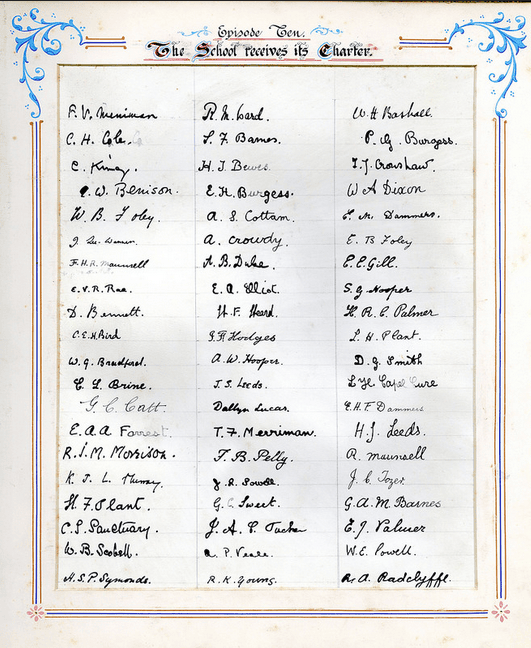 Episode Ten.
The School receives its Charter.
F. V. Merriman R. M. Lard. W. H. Bashall
C. H. Cole. S. F. Barnes P. G. Burgess.
C. Kimey. H. J. Bewes T. J. Cronshaw.
C. W. Benison. E. K. Burgess. W A Dixon
W. B. Foley. A. S. Cottam. L. M. Dammers.
A. Crowdy. E. B Foley
F. H. R. Maunsell A. B. Duke. E. E. Gill.
E. V. R. Rae. E. A. Elliot. S. G Hooper
D. Bennett. H. F. Heard. H. R. E. Palmer
C. E. H. Bird G. F. Hodges L. H. Plant.
W. G. Bradford. A. W. Hooper. D. G. Smith
E. L. Brine. J. S. Leeds. Capel Cure
G. C. Catt. Dallyn Lucas. E. H. F Dammers
E. A. A Forrest. T. F. Merriman. H. J. Leeds.
R. I. M. Morrison. F. B. Pelly. R. Maunsell
K. J. L. Murray J. R. Powell. J. C. Tozer
H. F. Plant. G. C. Sweet. G. A. M. Barnes
C. S. Sanctuary. J. A. C. Tucker E. J. Valmer
W. B. Scobell. P. Veale. W. E. Powell.
H. S. P. Symonds. R. K. Young. R. A. Radclyffe.